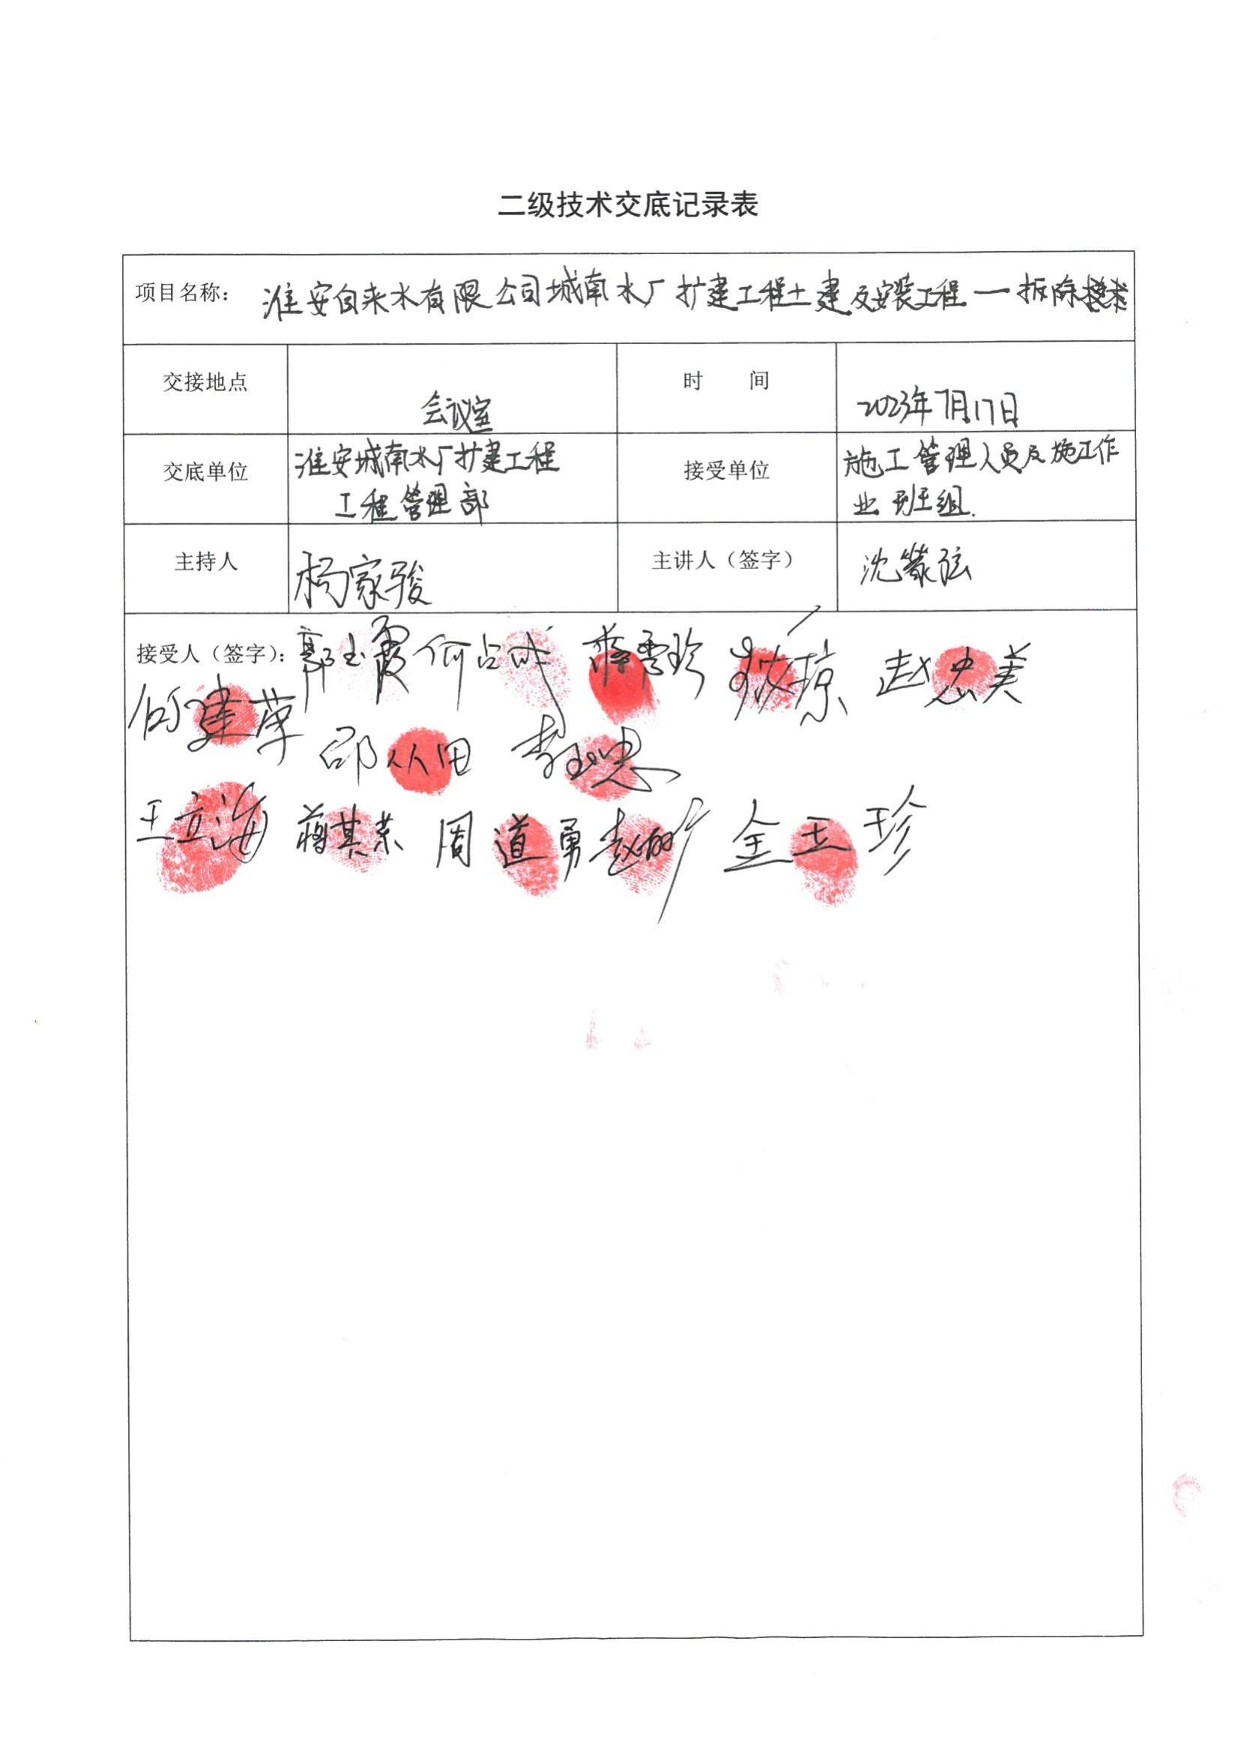 二级技术交底记录表
项目名称: 淮安自来水有限公司城南水厂扩建工程土建及安装工程一拆除
交接地点 会议室 时 间 2023年7月17日
交底单位 淮安城南水厂扩建工程
工程管理部 接受单位 施工管理人员及施工作
业班组.
主持人 杨家骏 主讲人（签字） 沈
接受人（签字）: 郭玉霞 何占 琼 赵忠美
建萍 邵从田 李 忠
王立海 蒋其荣 周道勇 赵 金玉珍